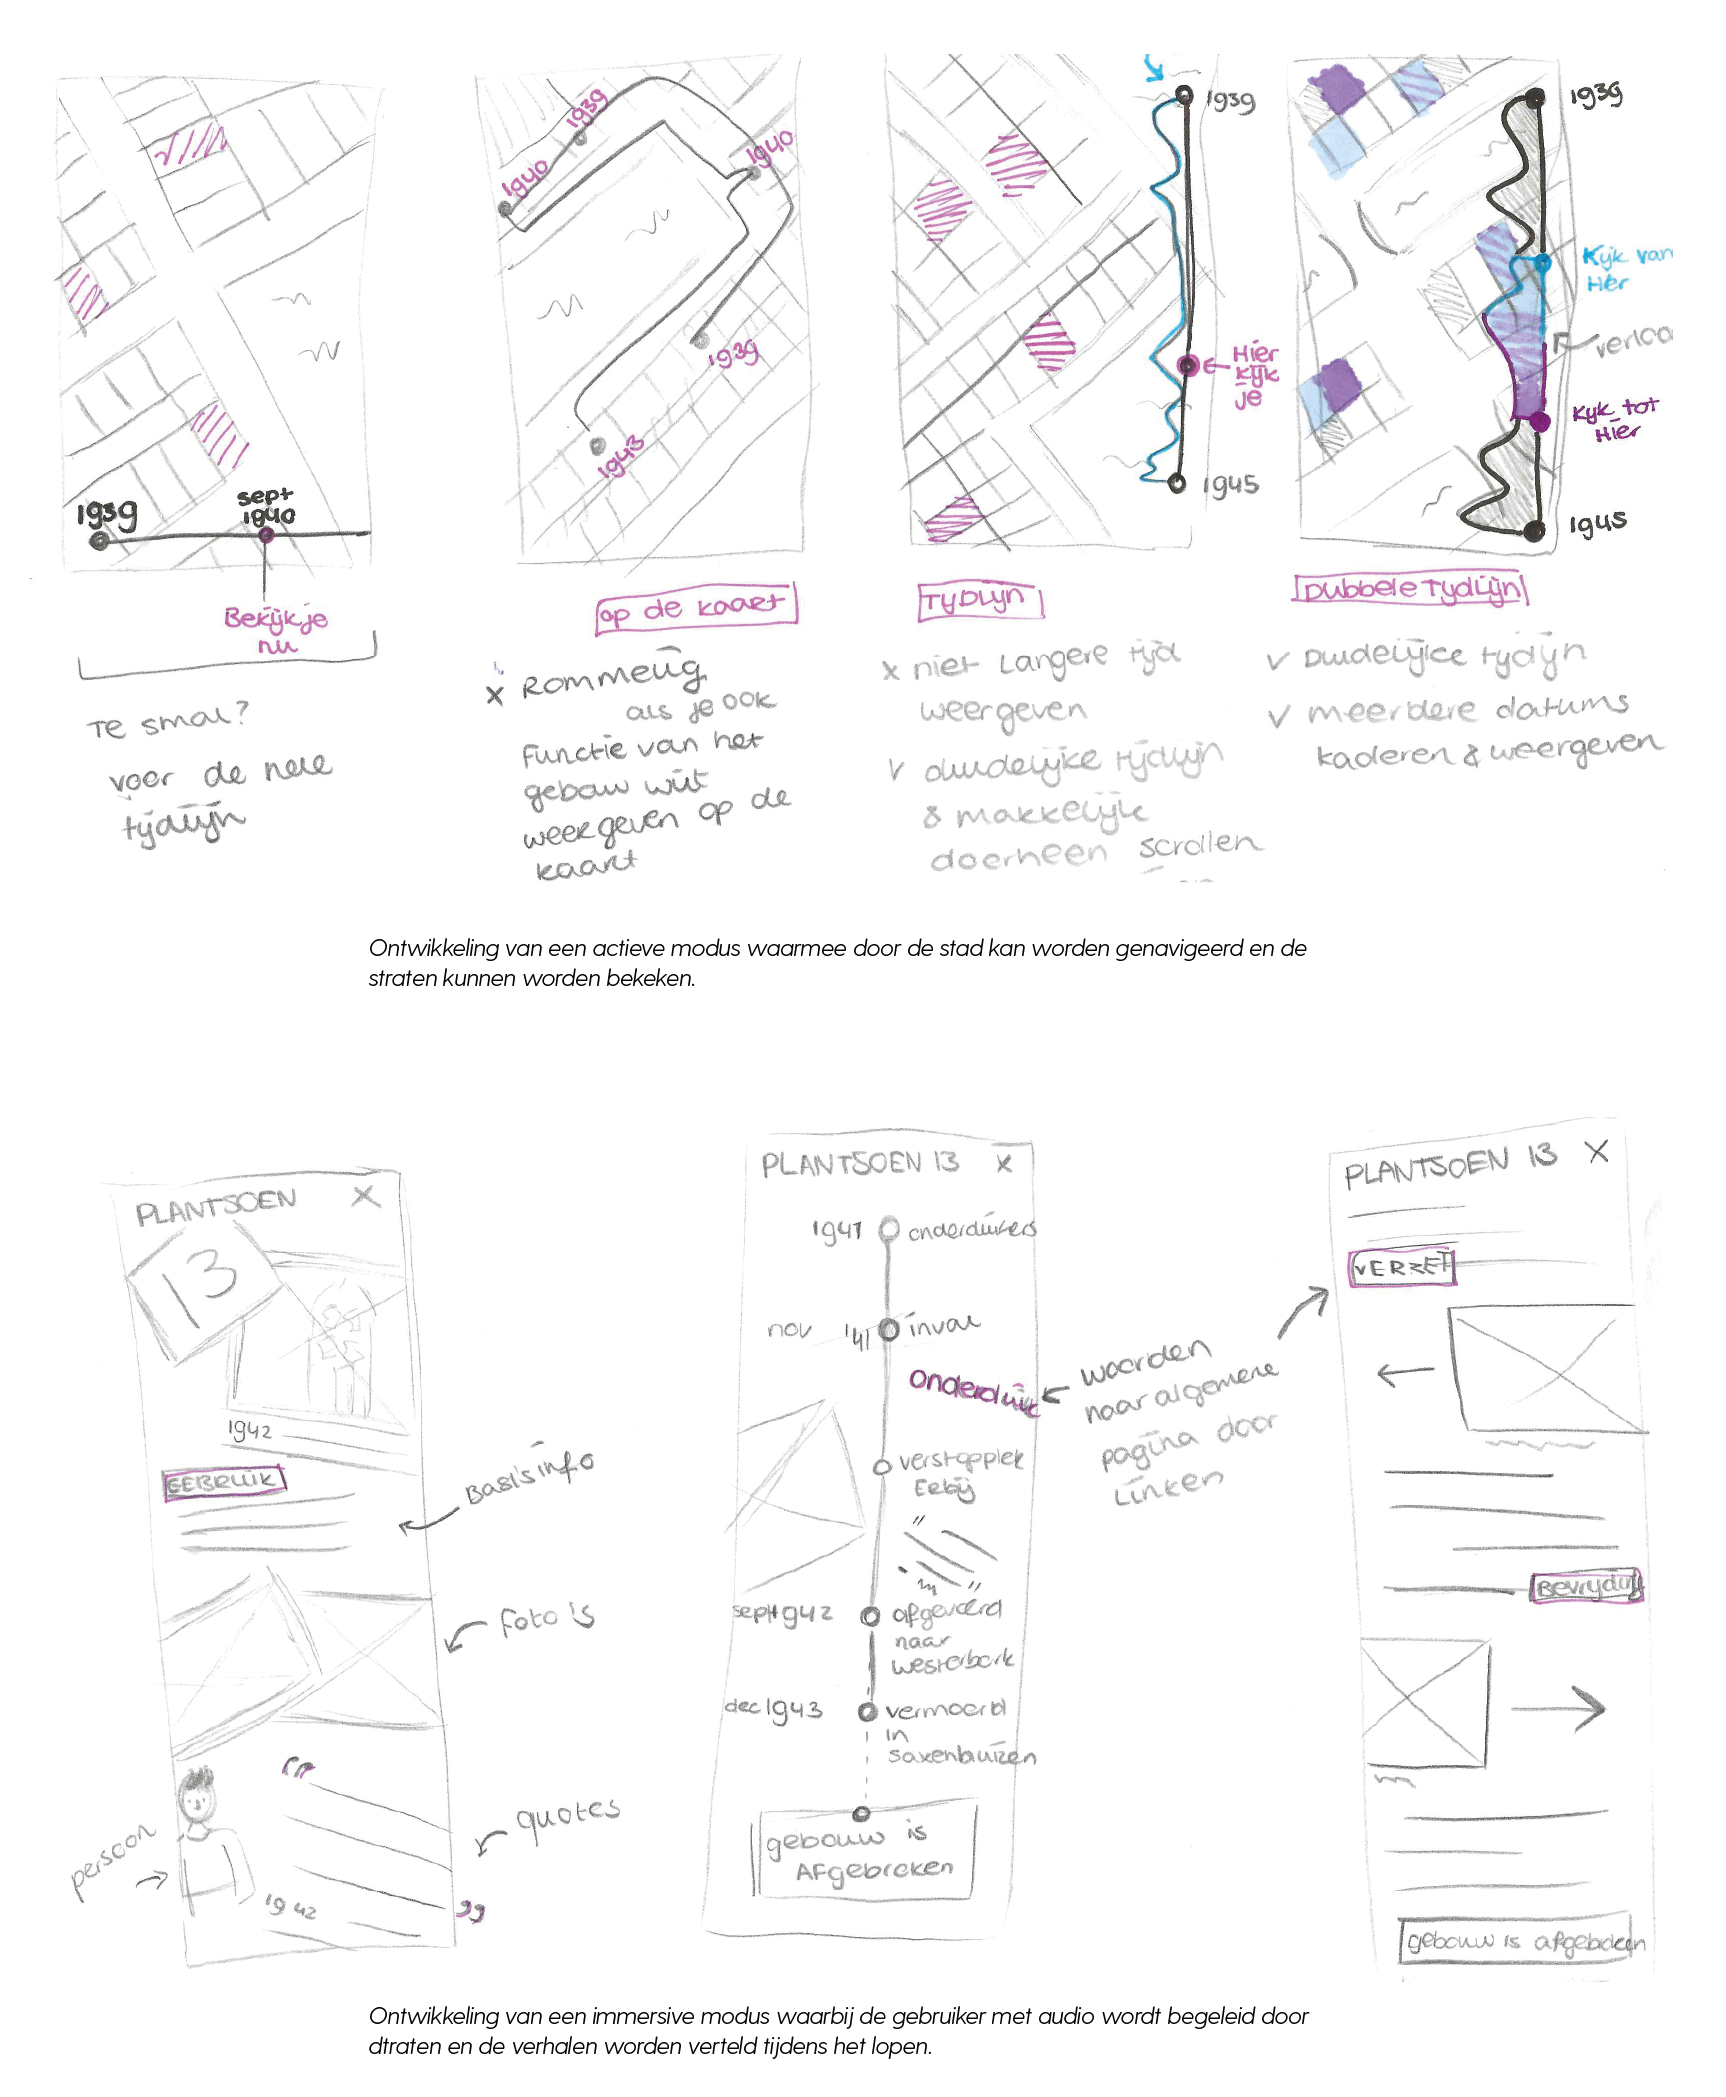 1939
sept
1940
Bekijk je
nu
Te smal?
voor de hele
tijdlijn
1939
1940
1940
1939
1943
op de kaart
x Rommelig
als je ook
functie van het
gebouw wilt
weergeven op de
kaart
1939
Hier
kijk
je
1945
Tijdlijn
x niet langere tijd
weergeven
v duidelijke tijdlijn
& makkelijk
doorheen scrollen
1939
Kijk van
Hier
Kijk tot
Hier
1945
Dubbele Tijdlijn
v Duidelijke tijdlijn
v meerdere datums
kaderen & weergeven
Ontwikkeling van een actieve modus waarmee door de stad kan worden genavigeerd en de
straten kunnen worden bekeken.
PLANTSOEN X
13
1942
Basisinfo
foto's
persoon
quotes
1942
PLANTSOEN 13 x
1941 onderduikers
nov '41 inval
onderduik
verstopplek
Erbij
sept 1942 afgevoerd
naar
westerbork
dec 1943 vermoord
in
saxenhuizen
gebouw is
Afgebroken
woorden
naar algemene
pagina door
linken
PLANTSOEN 13 X
VERZET
Bevrijding
gebouw is afgebroken
Ontwikkeling van een immersive modus waarbij de gebruiker met audio wordt begeleid door
dtraten en de verhalen worden verteld tijdens het lopen.